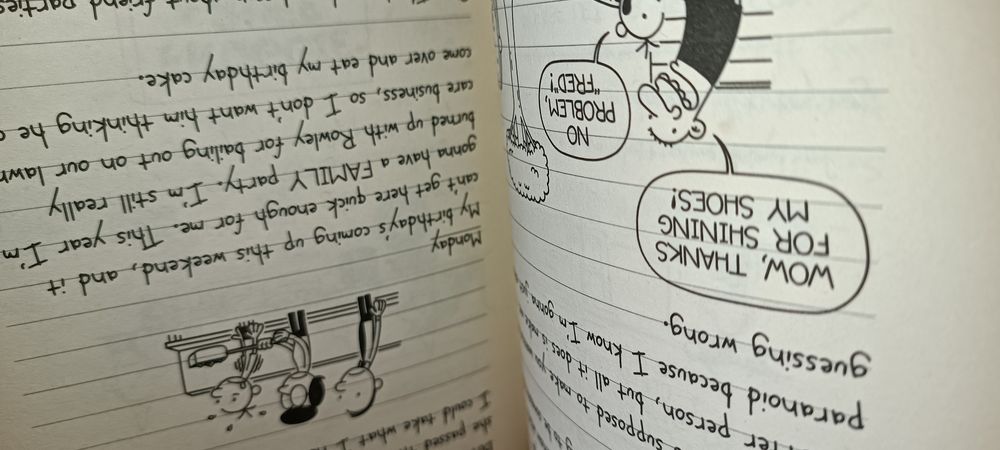 supposed to make you
person, but all it does is make me
paranoid because I know I'm gonna
guessing wrong.
WOW, THANKS
FOR SHINING
MY SHOES!
NO
PROBLEM,
"FRED!"
she passed
I could take what I
Monday
My birthday's coming up this weekend, and it
can't get here quick enough for me. This year I'm
gonna have a FAMILY party. I'm still really
burned up with Rowley for bailing out on our lawn
care business, so I don't want him thinking he
come over and eat my birthday cake.
about friend parties